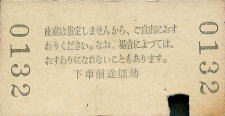 0132
座席は指定しませんから、ご自由におす
わりください。なお、場合によつては、
おすわりになれないこともあります。
下車前途無効
0132